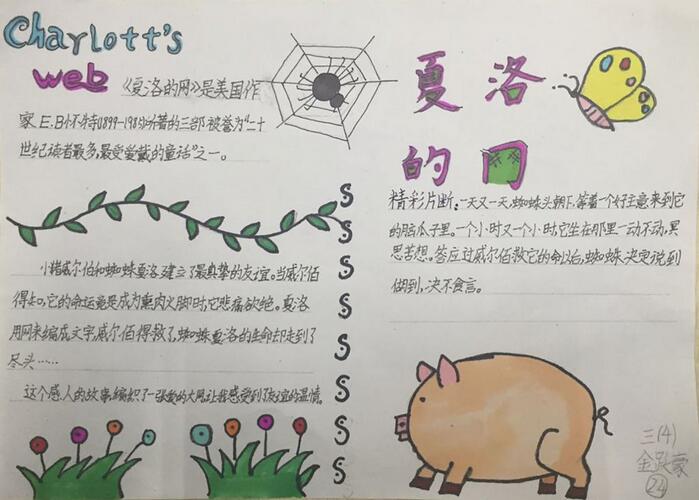 Charlott's
web
《夏洛的网》是美国作
家E.B怀特(1899-1985)所著的三部被誉为“二十
世纪读者最多,最受爱戴的童话”之一。
小猪威尔伯和蜘蛛夏洛建立了最真挚的友谊。当威尔佰
得知,它的命运竟是成为熏肉火脚时,它悲痛欲绝。夏洛
用网来编成文字,威尔佰得救了,蜘蛛夏洛的生命却走到了
尽头……
这个感人的故事,编织了一张爱的大网,让我感受到了友谊的温情。
S
S
S
S
S
S
S
S
夏洛
的网
精彩片断:一天又一天,蜘蛛头朝下,等着一个好主意来到它
的脑瓜子里。一个小时又一个小时,它坐在那里一动不动,冥
思苦想。答应过威尔佰救它的命以后,蜘蛛决定说到
做到,决不食言。
三(4)
金 豪
24